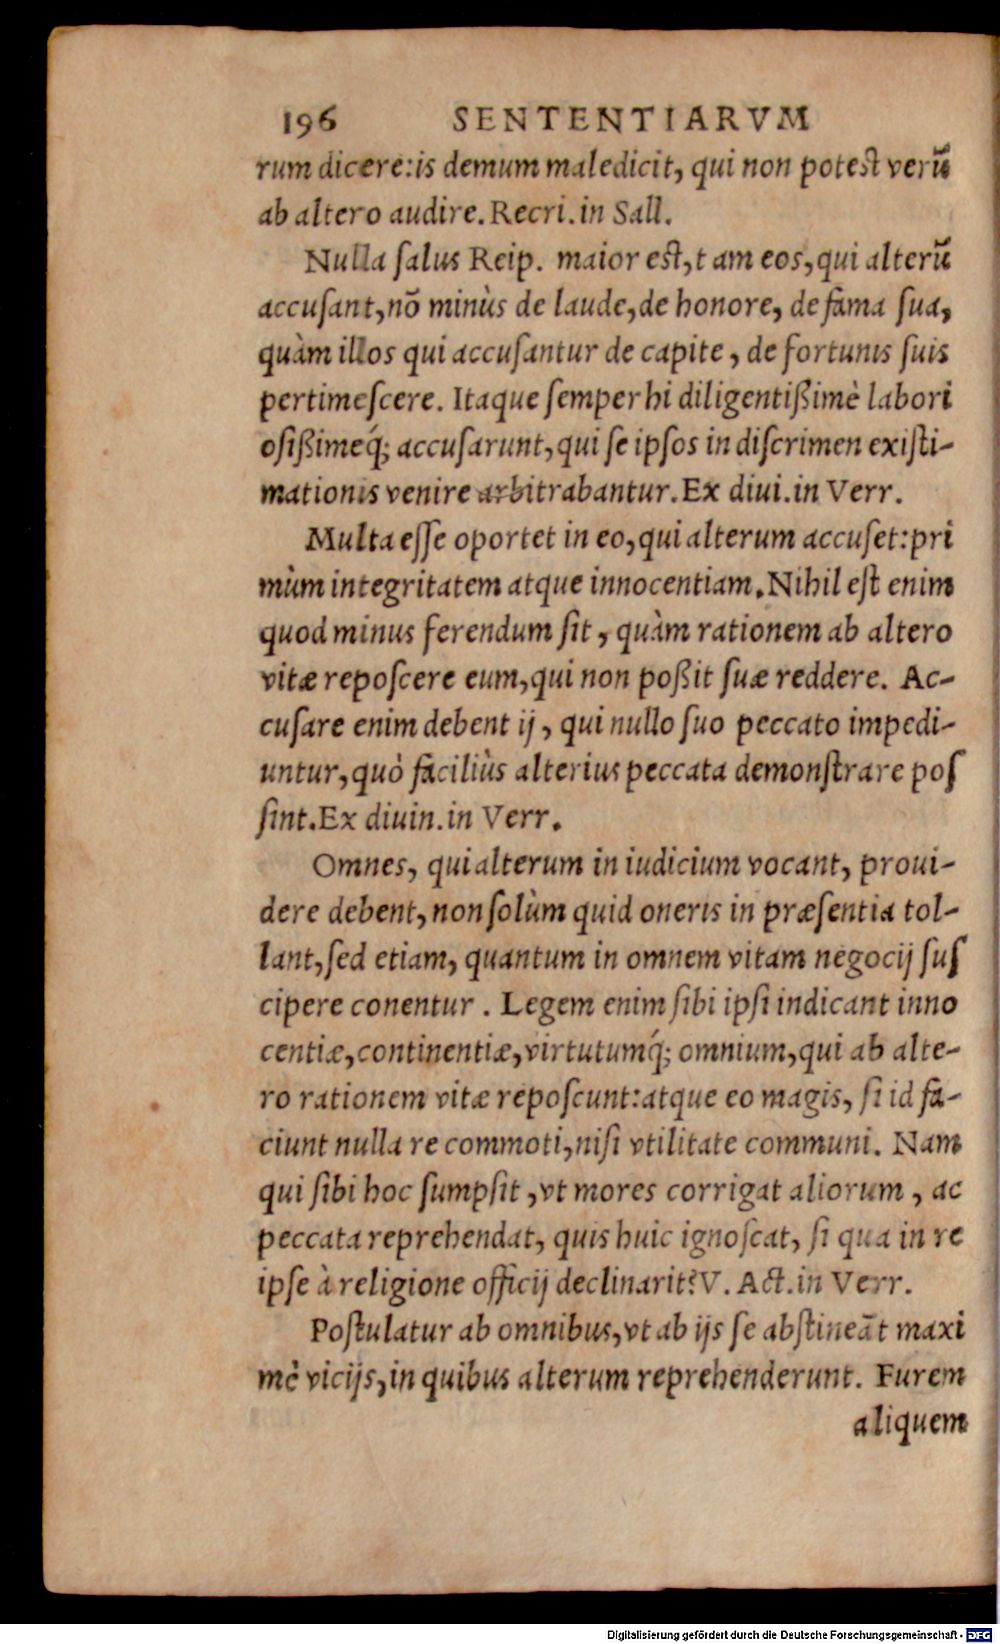 196 SENTENTIARVM
rum dicere:is demum maledicit, qui non potest verũ
ab altero audire. Recri. in Sall.
Nulla salus Reip. maior est, tam eos, qui alterũ
accusant, nõ minùs de laude, de honore, de fama sua,
quàm illos qui accusantur de capite, de fortunis suis
pertimescere. Itaque semper hi diligentißimè labori
osißimeq́; accusarunt, qui se ipsos in discrimen existi-
mationis venire arbitrabantur. Ex diui. in Verr.
Multa esse oportet in eo, qui alterum accuset: pri
mùm integritatem atque innocentiam. Nihil est enim
quod minus ferendum sit, quàm rationem ab altero
vitæ reposcere eum, qui non poßit suæ reddere. Ac-
cusare enim debent ij, qui nullo suo peccato impedi-
untur, quò faciliùs alterius peccata demonstrare pos
sint. Ex diuin. in Verr.
Omnes, qui alterum in iudicium vocant, proui-
dere debent, non solùm quid oneris in præsentia tol-
lant, sed etiam, quantum in omnem vitam negocij sus
cipere conentur. Legem enim sibi ipsi indicant inno
centiæ, continentiæ, virtutumq́; omnium, qui ab alte-
ro rationem vitæ reposcunt: atque eo magis, si id fa-
ciunt nulla re commoti, nisi vtilitate communi. Nam
qui sibi hoc sumpsit, vt mores corrigat aliorum, ac
peccata reprehendat, quis huic ignoscat, si qua in re
ipse à religione officij declinarit? V. Act. in Verr.
Postulatur ab omnibus, vt ab ijs se abstineãt maxi
mè vicijs, in quibus alterum reprehenderunt. Furem
aliquem
Digitalisierung gefördert durch die Deutsche Forschungsgemeinschaft - DFG